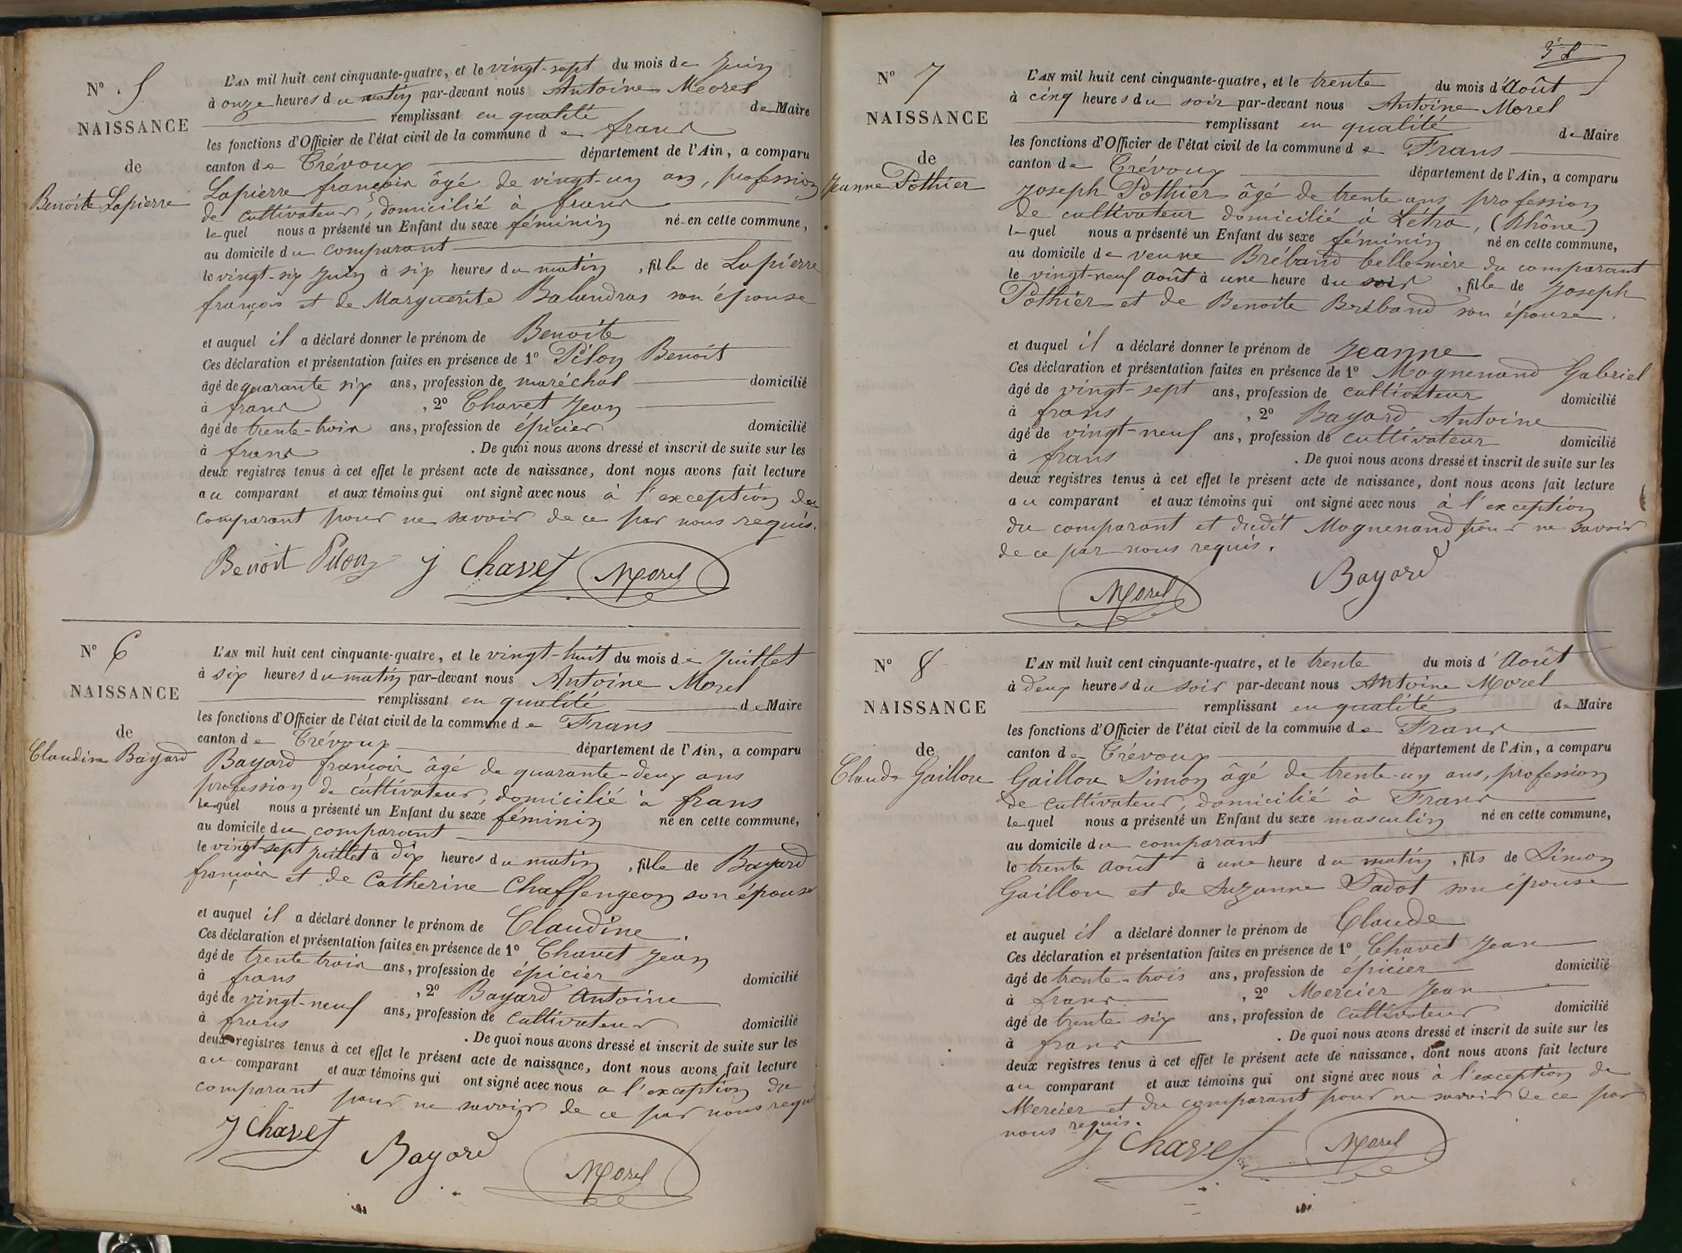 N° 5
NAISSANCE
de
Benoite Lapierre
L'AN mil huit cent cinquante-quatre, et le vingt-sept du mois de Juin
à onze heures du matin par-devant nous Antoine Morel
remplissant en qualité de Maire
les fonctions d'Officier de l'état civil de la commune de frans
canton de Trévoux département de l'Ain, a comparu
Lapierre françois âgé de vingt-un ans, profession
de cultivateur, domicilié à frans
lequel nous a présenté un Enfant du sexe féminin né en cette commune,
au domicile du comparant
le vingt-six Juin à six heures du matin, fille de Lapierre
françois et de Marguerite Balandras son épouse
et auquel il a déclaré donner le prénom de Benoite
Ces déclaration et présentation faites en présence de 1° Pilon Benoit
âgé de quarante six ans, profession de maréchal domicilié
à frans, 2° Chavet Jean
âgé de trente-trois ans, profession de épicier domicilié
à frans. De quoi nous avons dressé et inscrit de suite sur les
deux registres tenus à cet effet le présent acte de naissance, dont nous avons fait lecture
au comparant et aux témoins qui ont signé avec nous à l'exception du
comparant pour ne savoir de ce par nous requis.
Benoit Pilon J Chavet Morel
N° 6
NAISSANCE
de
Claudine Bayard
L'AN mil huit cent cinquante-quatre, et le vingt-huit du mois de Juillet
à six heures du matin par-devant nous Antoine Morel
remplissant en qualité de Maire
les fonctions d'Officier de l'état civil de la commune de Frans
canton de Trévoux département de l'Ain, a comparu
Bayard françois âgé de quarante-deux ans
profession de cultivateur, domicilié à frans
lequel nous a présenté un Enfant du sexe féminin né en cette commune,
au domicile du comparant
le vingt-sept Juillet à dix heures du matin, fille de Bayard
françois et de Catherine Chaffengeon son épouse
et auquel il a déclaré donner le prénom de Claudine.
Ces déclaration et présentation faites en présence de 1° Chavet Jean
âgé de trente trois ans, profession de épicier domicilié
à frans, 2° Bayard Antoine
âgé de vingt-neuf ans, profession de cultivateur domicilié
à frans. De quoi nous avons dressé et inscrit de suite sur les
deux registres tenus à cet effet le présent acte de naissance, dont nous avons fait lecture
au comparant et aux témoins qui ont signé avec nous a l'exception du
comparant pour ne savoir de ce par nous requi
J Chavet Bayard Morel
38
N° 7
NAISSANCE
de
Jeanne Pothier
L'AN mil huit cent cinquante-quatre, et le trente du mois d'Août
à cinq heures du soir par-devant nous Antoine Morel
remplissant en qualité de Maire
les fonctions d'Officier de l'état civil de la commune de Frans
canton de Trévoux département de l'Ain, a comparu
Joseph Pothier âgé de trente ans profession
de cultivateur domicilié à Létra, (Rhône)
lequel nous a présenté un Enfant du sexe féminin né en cette commune,
au domicile de veuve Bréband belle-mère du comparant
le vingt-neuf août à une heure du soir, fille de Joseph
Pothier et de Benoite Bréband son épouse.
et auquel il a déclaré donner le prénom de Jeanne
Ces déclaration et présentation faites en présence de 1° Mognenand Gabriel
âgé de vingt-sept ans, profession de cultivateur domicilié
à frans, 2° Bayard Antoine
âgé de vingt-neuf ans, profession de cultivateur domicilié
à frans. De quoi nous avons dressé et inscrit de suite sur les
deux registres tenus à cet effet le présent acte de naissance, dont nous avons fait lecture
au comparant et aux témoins qui ont signé avec nous à l'exception
du comparant et dudit Mognenand pour ne savoir
de ce par nous requis.
Morel Bayard
N° 8
NAISSANCE
de
Claude Gaillon
L'AN mil huit cent cinquante-quatre, et le trente du mois d'Août
à deux heures du soir par-devant nous Antoine Morel
remplissant en qualité de Maire
les fonctions d'Officier de l'état civil de la commune de Frans
canton de Trévoux département de l'Ain, a comparu
Gaillon Simon âgé de trente-un ans, profession
de cultivateur, domicilié à Frans
lequel nous a présenté un Enfant du sexe masculin né en cette commune,
au domicile du comparant
le trente août à une heure du matin, fils de Simon
Gaillon et de Suzanne Tadot son épouse
et auquel il a déclaré donner le prénom de Claude
Ces déclaration et présentation faites en présence de 1° Chavet Jean
âgé de trente-trois ans, profession de épicier domicilié
à frans, 2° Mercier Jean
âgé de trente six ans, profession de cultivateur domicilié
à frans. De quoi nous avons dressé et inscrit de suite sur les
deux registres tenus à cet effet le présent acte de naissance, dont nous avons fait lecture
au comparant et aux témoins qui ont signé avec nous à l'exception de
Mercier et du comparant pour ne savoir de ce par
nous requis.
J Chavet Morel